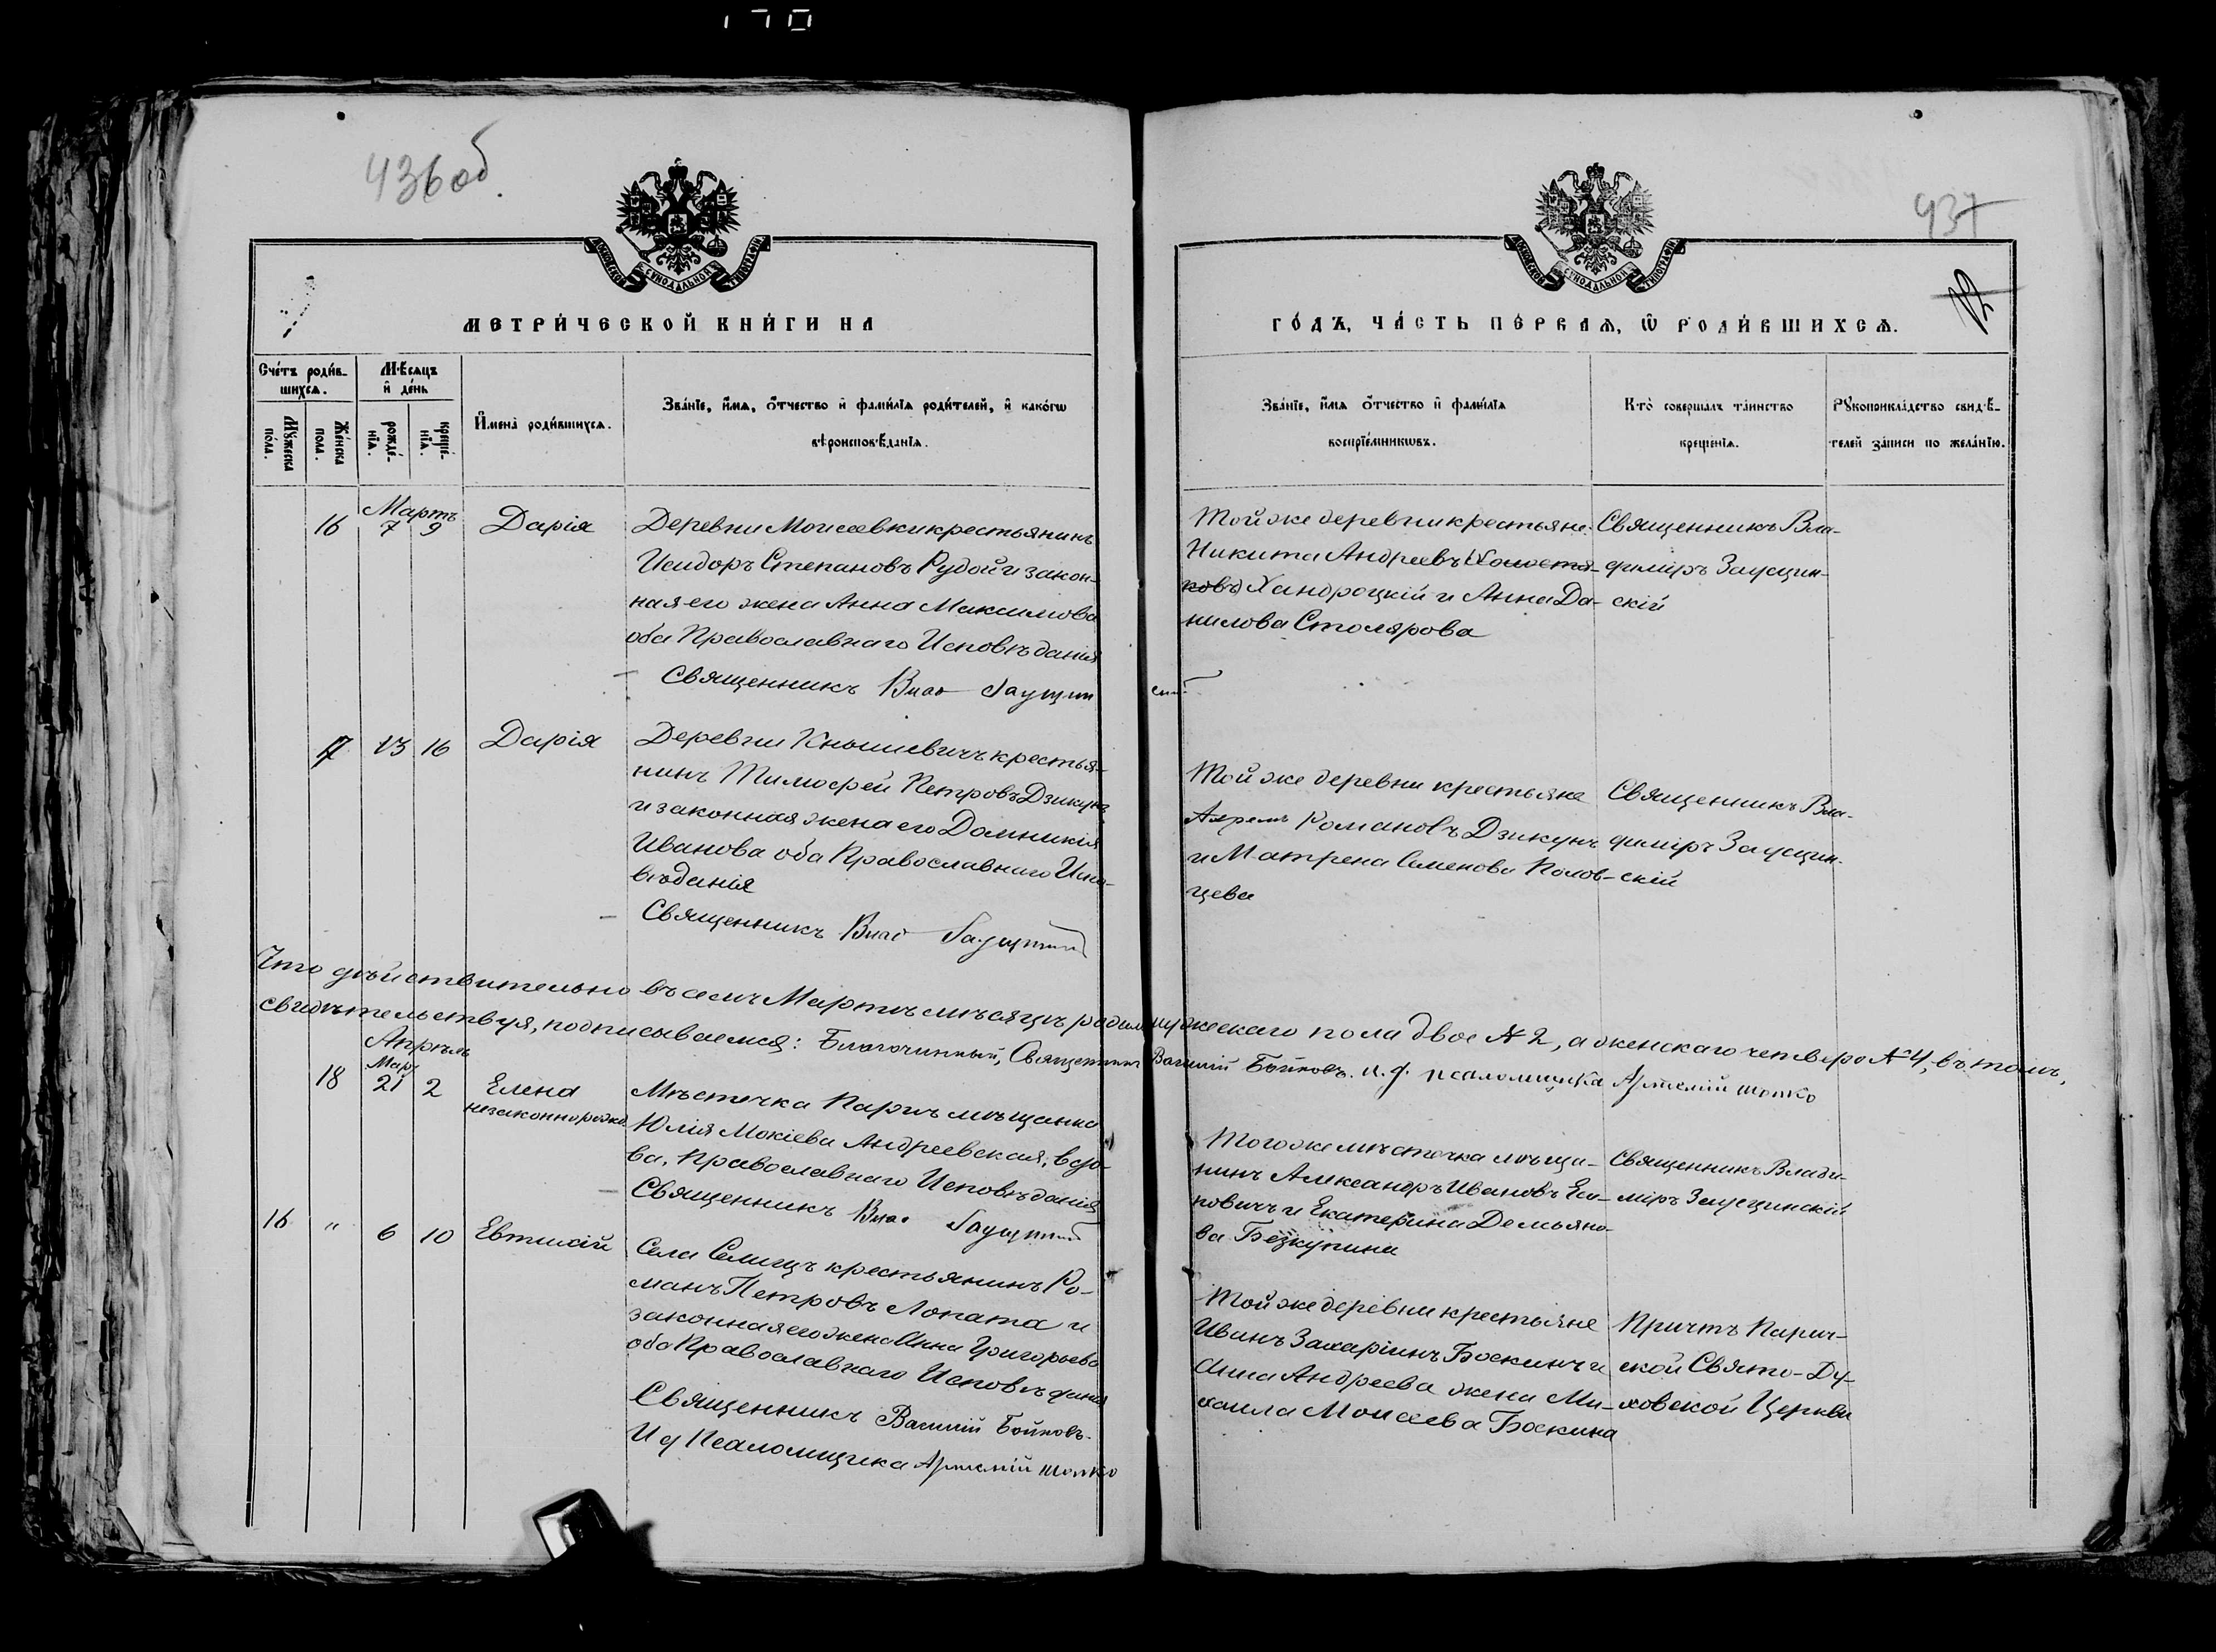 436об.
437
МОСКОВСКОЙ СѴНОДАЛЬНОЙ ТИПОГРАФІИ
МОСКОВСКОЙ СѴНОДАЛЬНОЙ ТИПОГРАФІИ
МЕТРИ́ЧЕСКОЙ КНИ́ГИ НА
ГО́ДЪ, ЧА́СТЬ ПЕ́РВАЯ, Ѡ РОДИ́ВШИХСЯ.
Сче́тъ роди́в-
шихся.
Мѣсяцъ
и де́нь
Му́жеска
по́ла.
Же́нска
пола.
рожде́-
нїя.
креще́-
нїя.
Имена̀ роди́вшихся.
Зва́нїе, и́мя, о́тчество и фами́лїя роди́телей, и како́гѡ
вѣроисповѣданїя.
Зва́нїе, и́мя о́тчество и фами́лїя
воспрїе́мникѡвъ.
Кто̀ совершалъ та́инство
креще́нїя.
Рукоприкла́дство свидѣ-
телей за́писи по жела́нїю.
Мартъ
16 7 9 Дарія
Деревни Моисеевки крестьянинъ
Исидоръ Степановъ Рудой и закон-
ная его жена Анна Максимова
оба Православнаго Исповѣданія
Священникъ Влад Заущин
ский
Той же деревни крестьяне:
Никита Андреевъ
ковъ Хандроцкій и Анна Да-
нилова Столярова
Священникъ Вла-
диміръ Заущин-
скій
17 13 16 Дарія
Деревни Кнышевичъ крестья-
нинъ Тимофей Петровъ Дзикунъ
и законная жена его Домникія
Иванова оба Православнаго Испо-
вѣданія
Священникъ Влад Заущинскій
Той же деревни крестьяне
Романовъ Дзикунъ
и Матрена Семенова Полов-
цева
Священникъ Вла-
диміръ Заущин-
скій
Что дѣйствительно въ семъ Мартѣ мѣсяцѣ родил мужескаго пола двое № 2, а женскаго четверо № 4, въ томъ,
свидѣтельствуя, подписываемся: Благочинный, Священникъ Василій Бойковъ. и. д. псаломщика Артемій Шопко
Апрѣль
Мар.
18 21 2 Елена
незаконнорожд.
Мѣстечка Паричъ мѣщанка
Юлія Мокіева Андреевская, вдо-
ва, Православнаго Исповѣданія
Священникъ Влад Заущинскій
Того же мѣстечка мѣща-
нинъ Александръ Ивановъ Еси-
повичъ и Екатерина Демьяно-
ва Безкупина
Священникъ Влади-
міръ Заущинскій
16 " 6 10 Евтихій
Села Селищъ крестьянинъ Ро-
манъ Петровъ Лопата и
законная его жена Анна Григорьева
оба Православнаго Исповѣданія
Священникъ Василій Бойковъ.
И д Псаломщика Артемій Шопко
Той же деревни крестьяне
Иванъ Захаріинъ Боскинъ и
Анна Андреева жена Ми-
хаила Моисеева Боскина
Причтъ Парич-
ской Свято-Ду-
ховской Церкви